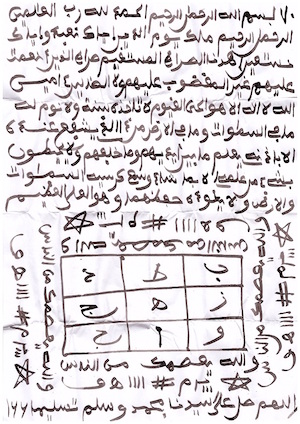 بسم الله الرحمن الرحيم الحمد لله رب العلمين
الرحمن الرحيم ملك يوم الدين اياك نعبد واياك
نستعين اهدنا الصراط المستقيم صراط الذين انعمت
عليهم غير المغضوب عليهم ولا الضالين امين
الله لا اله الا هو الحي القيوم لا تاخذه سنة ولا نوم له
ما في السموات وما في الارض من ذا الذي يشفع عنده
الا باذنه يعلم ما بين ايديهم وما خلفهم ولا يحيطون
بشيء من علمه الا بما شاء وسع كرسيه السموات
والارض ولا يئوده حفظهما وهو العلي العظيم
والله يعصمك من الناس
والله يعصمك من الناس
والله يعصمك من الناس
ب ط
ز ه ج
و ا ح
والله يعصمك من الناس
اللهم صل على سيدنا محمد وسلم تسليما